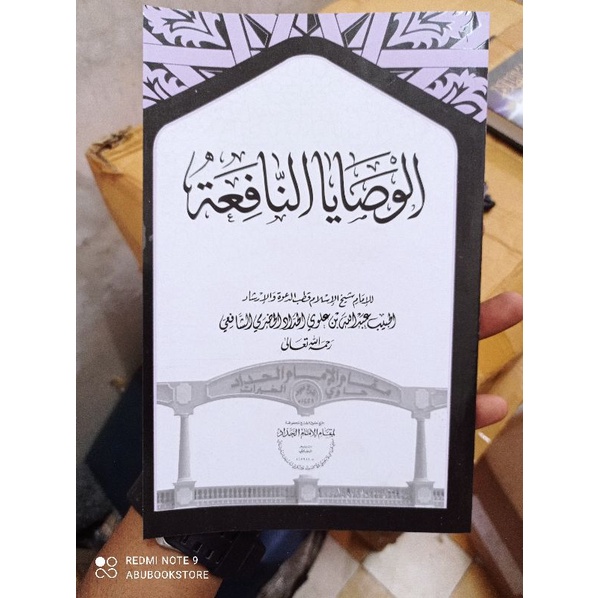 الوَصَايَا النَّافِعَةُ
للإمام شيخ الإسلام قطب الدعوة والإرشاد
الحبيب عبد الله بن علوي الحداد الحضرمي الشافعي
رحمه الله تعالى
مقام الإمام الحداد
حاوي الخيرات
لمقام الإمام الحداد
REDMI NOTE 9
ABUBOOKSTORE